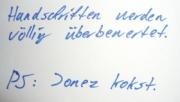 Handschriften werden
völlig überbewertet.
PS: Jonez kokst.